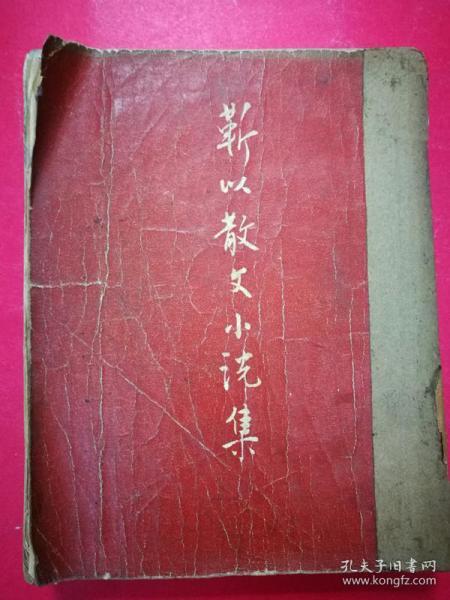 靳以散文小说集
孔夫子旧书网
www.kongfz.com